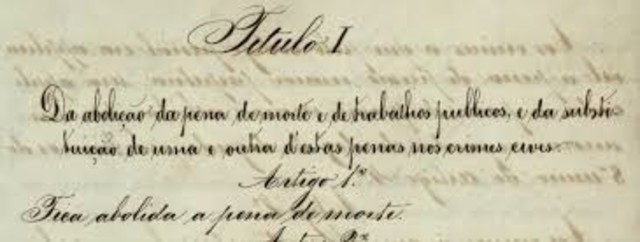 Titulo I
Da abolição da pena de morte e de trabalhos publicos, e da substi
tuição de uma e outra d'estas penas nos crimes civis.
Artigo 1.º
Fica abolida a pena de morte.
Artigo 2.º